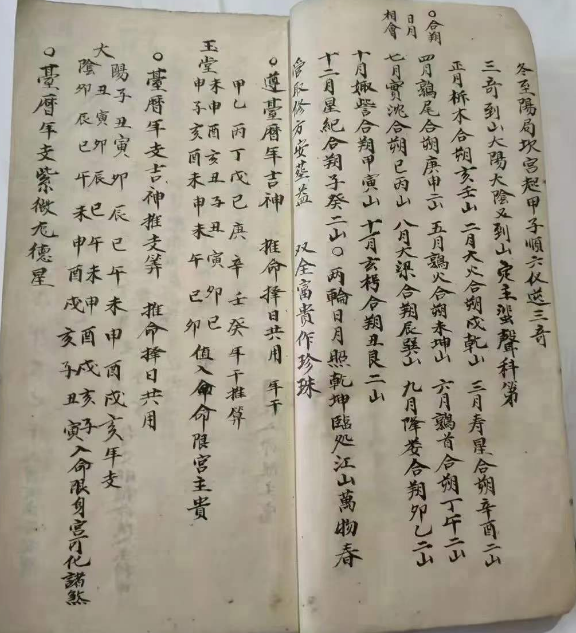 冬至陽局坎宮起甲子順六仪逆三奇
三奇到山大陽大陰又到山定主蜚聲科第
○合朔
日月
相會
正月析木合朔亥壬山 二月大火合朔戍乾山 三月寿星合朔辛酉二山
四月鶉尾合朔庚申二山 五月鶉火合朔未坤山 六月鶉首合朔丁午二山
七月實沈合朔巳丙山 八月大梁合朔辰巽山 九月降婁合朔卯乙二山
十月娵訾合朔甲寅山 十一月玄枵合朔丑艮二山
十二月星紀合朔子癸二山○两輪日月照乾坤臨处江山萬物春
修方安葬益 双全富貴作珍珠
○遵臺曆年吉神 推命择日共用 年干
甲乙丙丁戊己庚辛壬癸年干推算
玉堂
未申酉亥丑子丑寅卯巳
申子亥酉未申未午巳卯 值入命限宮主貴
○臺曆年支吉神推走算 推命择日共用
太陽子丑寅卯辰巳午未申酉戍亥年支
丑寅卯辰巳午未申酉戍亥子
陰卯辰巳午未申酉戍亥子丑寅入命限身宮可化諸煞
○臺曆年支紫微龙德星